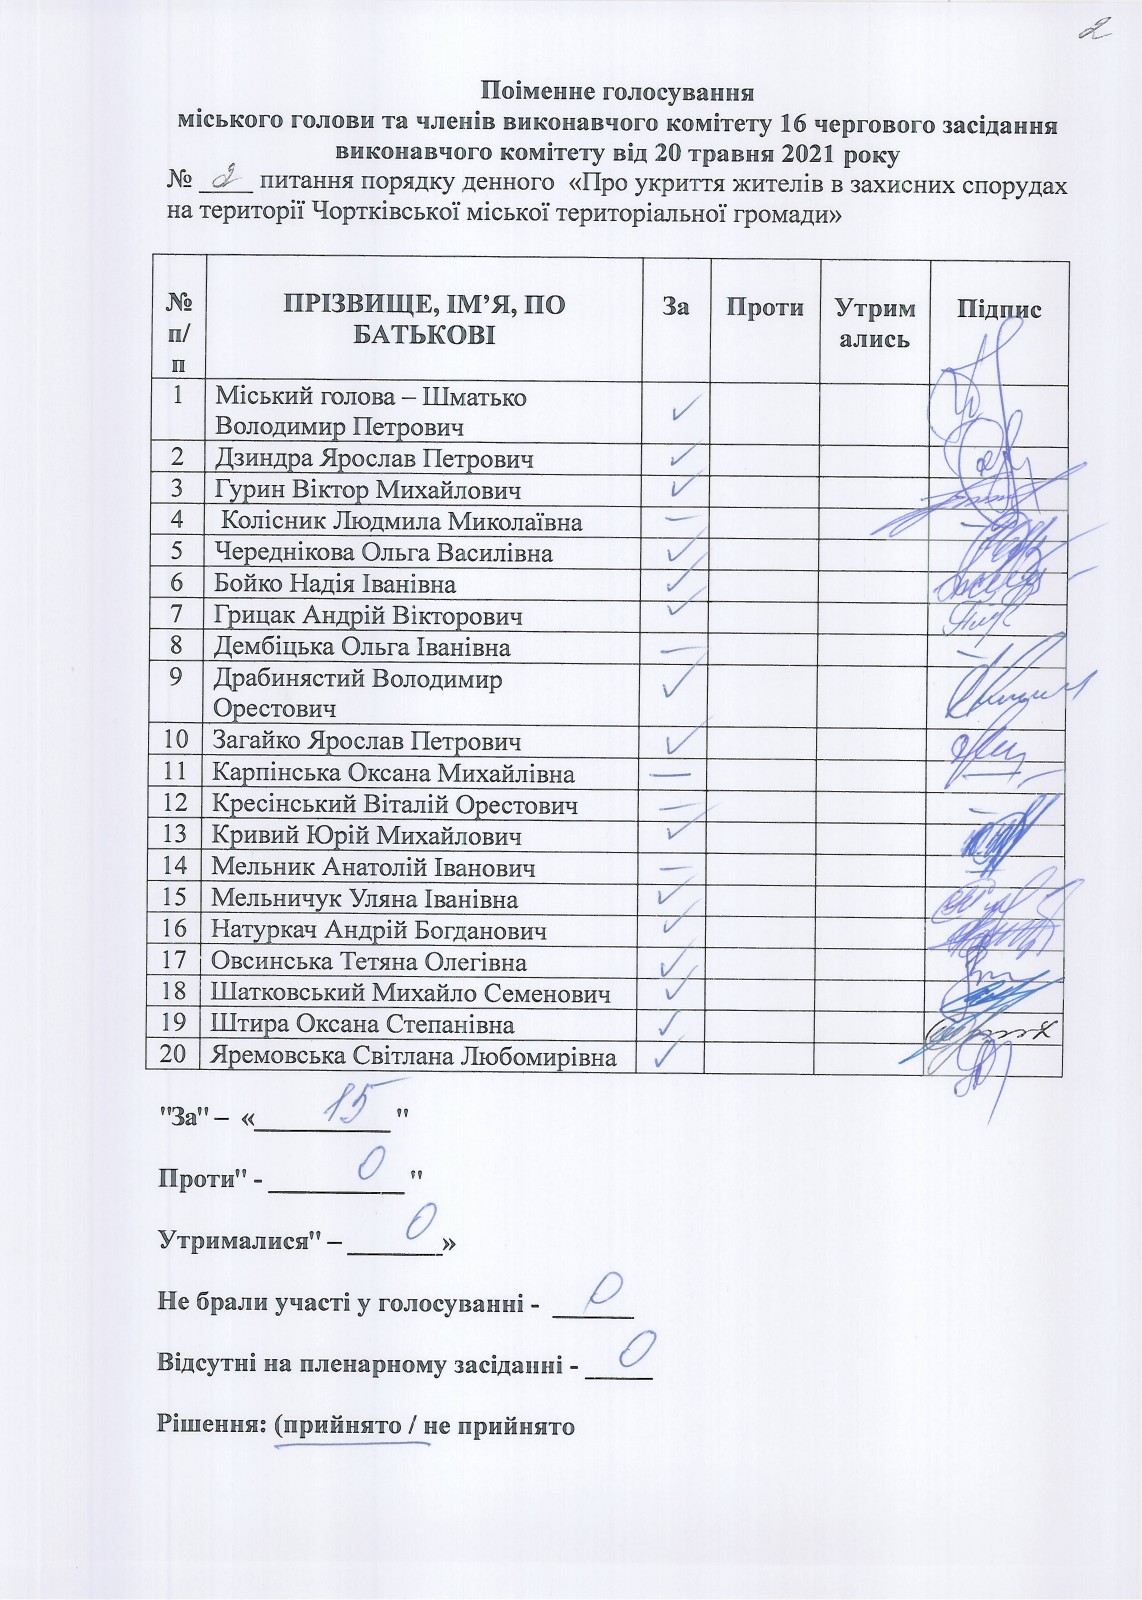 2
Поіменне голосування
міського голови та членів виконавчого комітету 16 чергового засідання
виконавчого комітету від 20 травня 2021 року
№ 2 питання порядку денного «Про укриття жителів в захисних спорудах
на території Чортківської міської територіальної громади»
№ п/п ПРІЗВИЩЕ, ІМ’Я, ПО БАТЬКОВІ За Проти Утримались Підпис
1 Міський голова – Шматько
Володимир Петрович ✓
2 Дзиндра Ярослав Петрович ✓
3 Гурин Віктор Михайлович ✓
4 Колісник Людмила Миколаївна –
5 Череднікова Ольга Василівна ✓
6 Бойко Надія Іванівна ✓
7 Грицак Андрій Вікторович ✓
8 Дембіцька Ольга Іванівна –
9 Драбинястий Володимир
Орестович ✓
10 Загайко Ярослав Петрович ✓
11 Карпінська Оксана Михайлівна –
12 Кресінський Віталій Орестович –
13 Кривий Юрій Михайлович ✓
14 Мельник Анатолій Іванович –
15 Мельничук Уляна Іванівна ✓
16 Натуркач Андрій Богданович ✓
17 Овсинська Тетяна Олегівна ✓
18 Шатковський Михайло Семенович ✓
19 Штира Оксана Степанівна ✓
20 Яремовська Світлана Любомирівна ✓
"За" – « 15 "
Проти" - 0 "
Утрималися" – 0 »
Не брали участі у голосуванні - 0
Відсутні на пленарному засіданні - 0
Рішення: (прийнято / не прийнято